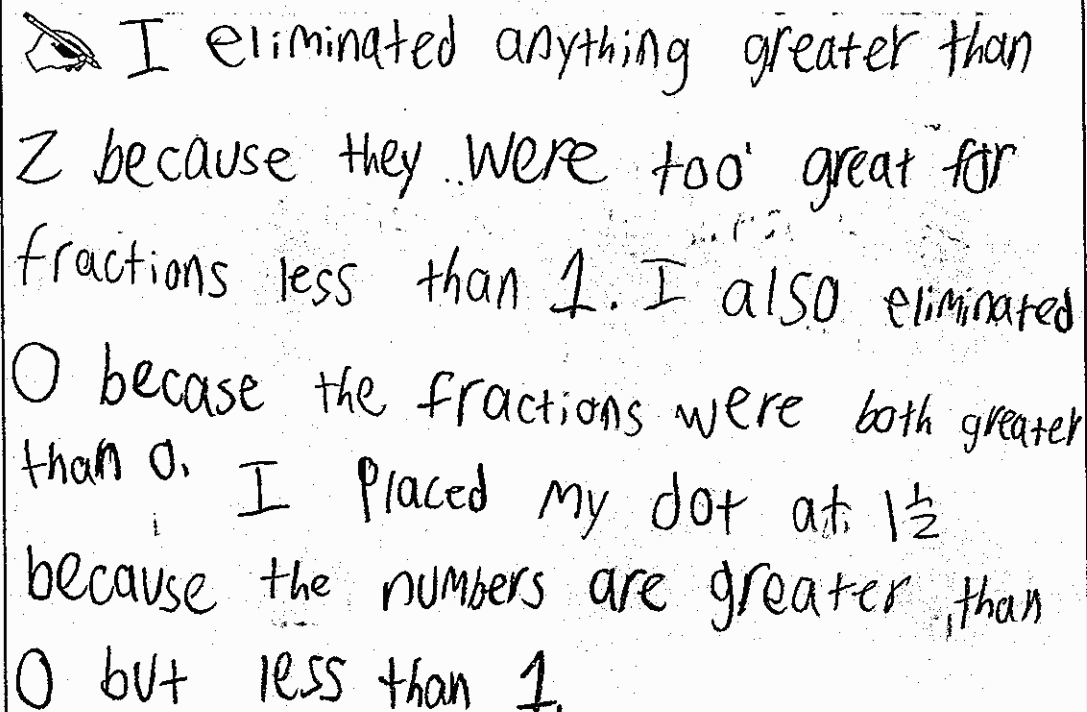 I eliminated anything greater than
2 because they were too great for
fractions less than 1. I also eliminated
0 becase the fractions were both greater
than 0. I placed my dot at 1½
because the numbers are greater than
0 but less than 1.